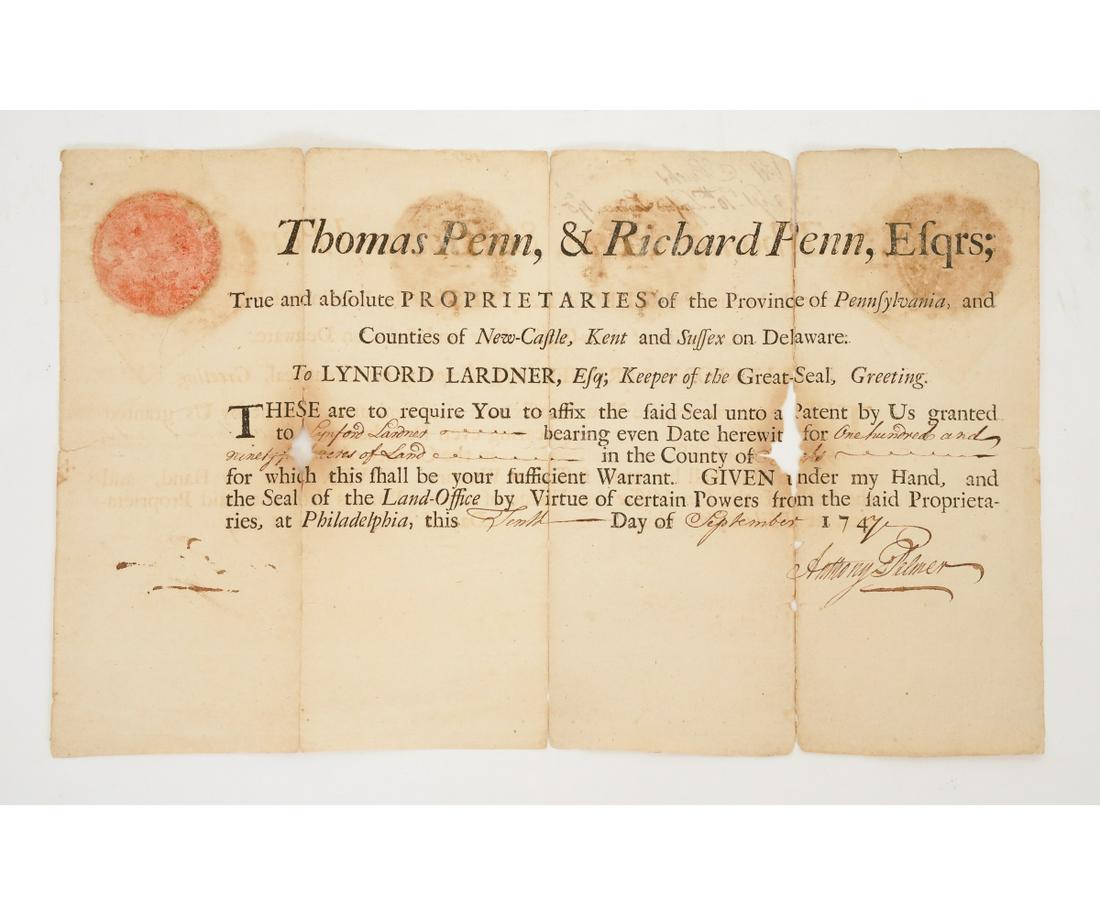 Thomas Penn, & Richard Penn, Eſqrs;
True and abſolute PROPRIETARIES of the Province of Pennſylvania, and
Counties of New-Caſtle, Kent and Suſſex on Delaware:
To LYNFORD LARDNER, Eſq; Keeper of the Great-Seal, Greeting.
THESE are to require You to affix the ſaid Seal unto a Patent by Us granted
to Lynford Lardner bearing even Date herewith for One hundred and
acres of Land in the County of
for which this ſhall be your ſufficient Warrant. GIVEN under my Hand, and
the Seal of the Land-Office by Virtue of certain Powers from the ſaid Proprieta-
ries, at Philadelphia, this Tenth Day of September 1747
Anthony Palmer